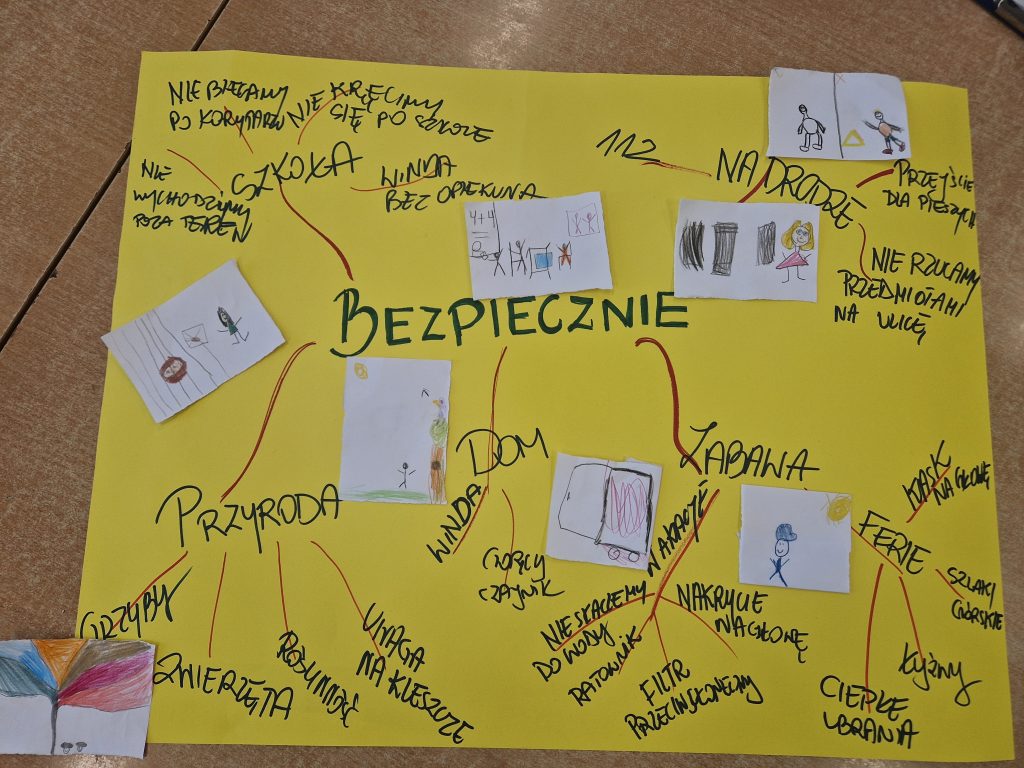 NIE BIEGAMY
PO KORYTARZU
NIE KRĘCIMY
SIĘ PO SZKOLE
NIE
WYCHODZIMY
POZA TEREN
SZKOŁA
WINDA
BEZ OPIEKUNA
112
NA DRODZE
PRZEJŚCIE
DLA PIESZYCH
NIE RZUCAMY
PRZEDMIOTAMI
NA ULICĘ
4+4
BEZPIECZNIE
PRZYRODA
GRZYBY
ZWIERZĘTA
ROŚLINNOŚĆ
UWAGA
NA KLESZCZE
DOM
WINDA
GORĄCY
CZAJNIK
ZABAWA
WAKACJE
NIE SKACZEMY
DO WODY
RATOWNIK
FILTR
PRZECIWSŁONECZNY
NAKRYCIE
NA GŁOWĘ
FERIE
KASK
NA GŁOWĘ
SZLAKI
GÓRSKIE
ŁYŻWY
CIEPŁE
UBRANIA